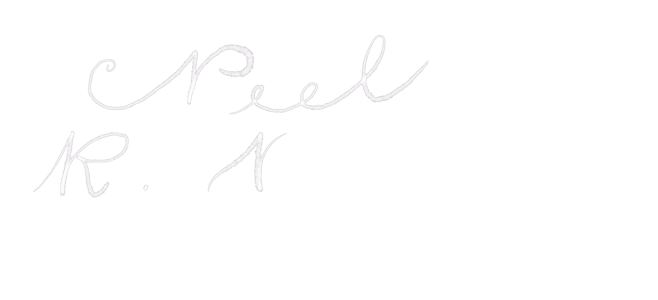 Peel
R. N